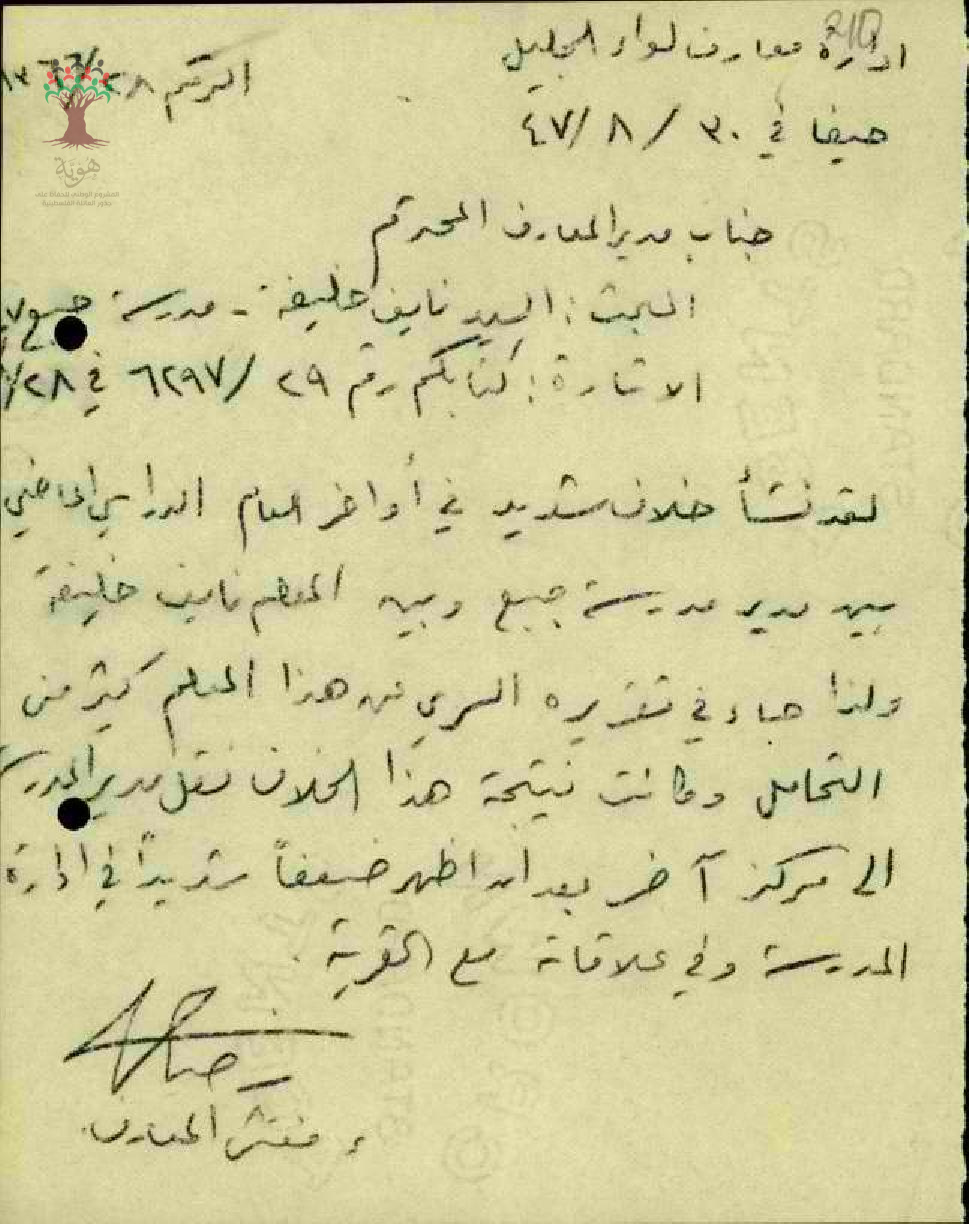 210
ادارة معارف لواء الجليل
الرقم ٢٨/
حيفا في ٣٠ / ٨ / ٤٧
هوية
المشروع الوطني للحفاظ على
جذور العائلة الفلسطينية
جناب مدير المعارف المحترم
البحث : السيد نايف خليفة - مدرسة جبع
الاشارة : كتابكم رقم ٢٩ /٦٢٩٧ في ٢٨/
لقد نشأ خلاف شديد في أواخر العام الدراسي الماضي
بين مدير مدرسة جبع وبين المعلم نايف خليفة
ولذا جاء في تقريره السري عن هذا المعلم كثير من
التحامل وكانت نتيجة هذا الخلاف نقل مدير المدرسة
الى مركز آخر بعد ان اظهر ضعفاً شديداً في ادارة
المدرسة وفي علاقاته مع القرية .
ء مفتش المعارف
STANDARD